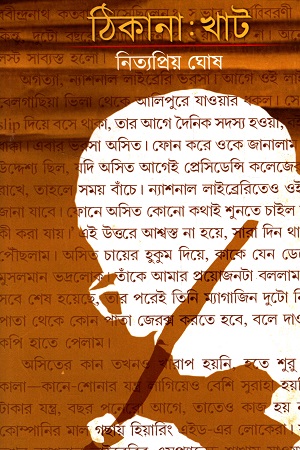 ঠিকানা : খাট
নিত্যপ্রিয় ঘোষ
লস্ট সাব্যস্ত হলো।
অগত্যা, ন্যাশনাল লাইব্রেরি ভরসা। আগে ওই
বেলগাছিয়া ভিলা থেকে আলিপুরে যাওয়ার ধকল।
slip দিয়ে বসে থাকা, তার আগে দৈনিক সদস্য হওয়া,
একা। এবার ভরসা অসিত। ফোন করে ওকে জানালাম
উদ্দেশ্য ছিল, যদি অসিত আগেই প্রেসিডেন্সি কলেজের
রাখে, তাহলে সময় বাঁচে। ন্যাশনাল লাইব্রেরিতেও ওই
জানা যাবে। ফোনে অসিত কোনো কথাই শুনতে চাইল
কী করা যায়।' এই উত্তরে আশ্বস্ত না হয়ে, সারা দিন থা
পৌঁছলাম। অসিত চায়ের হুকুম দিয়ে, কাকে যেন ডে
মুসলমান ভদ্রলোক, তাঁকে আমার প্রয়োজনটা বললাম
সবে শেষ হয়েছে, তার পরেই তিনি ম্যাগাজিন দুটো নি
পাতা থেকে কোন পাতা জেরক্স করতে হবে, বলে দাও
কপি হাতে পেলাম।
অসিতের কান তখনও খারাপ হয়নি, হতে শুরু
কালা—কানে-শোনার যন্ত্র লাগিয়েও বেশি সুরাহা হয়
টাকার যন্ত্র, বছর পনেরো আগে, তাতেও কাজ হয় ন
কোম্পানির মাল গছায় হিয়ারিং এইড-এর লোকেরা।